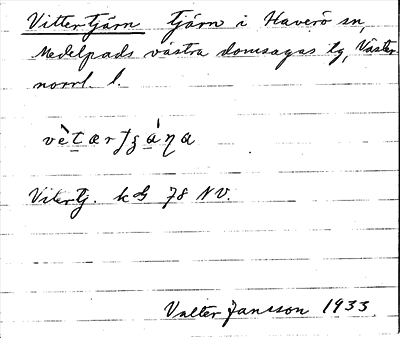 Vittertjärn tjärn i Haverö sn,
Medelpads västra domsagas tg, Väster-
norrl. l.
vètærʃȥáṇa
Vitertj. kG 78 NV.
Valter Jansson 1933.